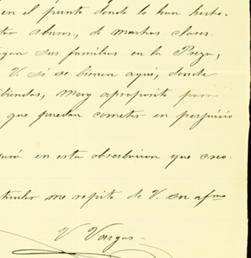 en el punto donde lo han hecho
abusos, de muchas clases
sus familias en la Presa,
V. si se vienen aqui, donde
viviendas, muy aproposito para
que puedan cometer en perjuicio
en esta observacion que creo
me repito de V. su afmo
V Vargas